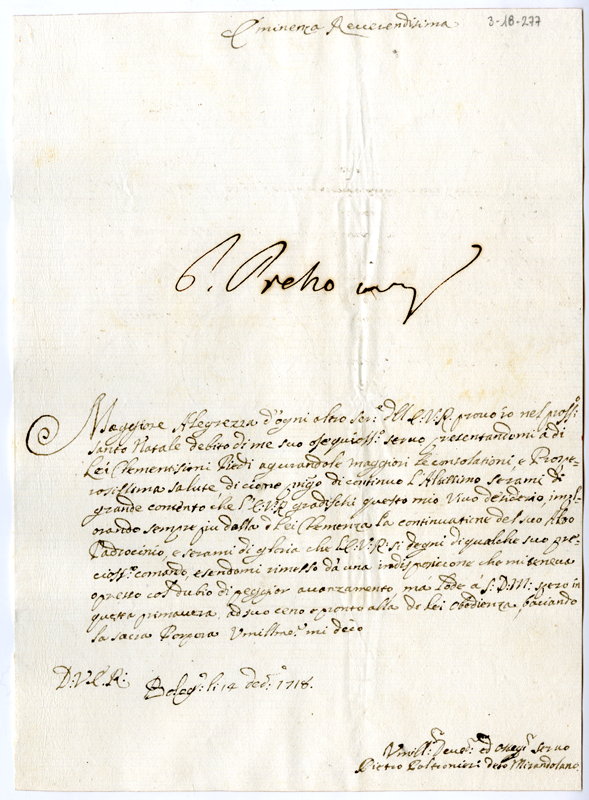 Eminenza Reverendisima
3-18-277
Maggiore Alegrezza d'ogni altro ser:e dll E.V.R. provo io nel pross:o
santo Natale debito di me suo osequioss:o servo, presentandomi à di
Lei Clementisimi Piedi agurandole maggiori le consolationi, e Prospe-
rosissima salute, di cio ne prego di continuo l'Altissimo serami di
grande contento che l'E.V.R. gradischi questo mio Vivo desiderio, impl-
orando sempre piu dalla di Lei Clemenza la continuatione del suo Alto
Padrocinio, e serami di gloria che l'E.V.R. si degni di qualche suo pre-
cioss:o comando, esendomi rimesso da una indisposicione che mi teneva
opresso col dubio di peggior avanzamento, ma lode à S: D: M: spero in
questa primavera, ad suo ceno e pronto alla di lei obedienza, baciando
la sacra Porpora Umillme:e mi dico
D: V: E: R:
Bolog:a li 14 dec:e 1718.
Umill:o Dev:o ed Osseq:o servo
Pietro Paltronieri deto Mirandolano